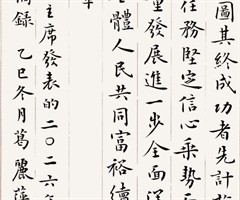 圖其終成功者先計於
任務堅定信心乘勢
量發展進一步全面深
體人民共同富裕續
主席發表的二〇二六年
錄 乙巳冬月葛麗萍